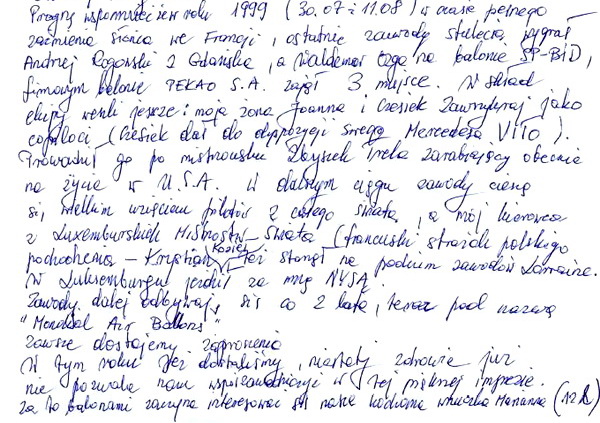 Pragnę wspomnieć że w roku 1999 (30.07 i 11.08) w czasie pełnego
zaćmienia słońca we Francji, ostatnie zawody stulecia wygrał
Andrzej Rogowski z Gdańska, a Waldemar Ozga na balonie SP-BID,
firmowym balonie PEKAO S.A. zajął 3 miejsce. W skład
ekipy weszli jeszcze: moja żona Joanna i Czesiek Zawrzykraj jako
copiloci (Czesiek dał do dyspozycji swego Mercedesa VITO).
Prowadził go po mistrzowsku Zbyszek Trela zarabiający obecnie
na życie w U.S.A. W dalszym ciągu zawody cieszą
się wielkim wzięciem pilotów z całego świata, a mój kierowca
z Luxemburskich Mistrzostw Świata (francuski strażak polskiego
pochodzenia – Krystian Kozioł też stanął na podium zawodów Lorraine.
W Luksemburgu jeździł za mną NYSĄ.
Zawody dalej odbywają się co 2 lata, teraz pod nazwą
"Mondial Air Ballons"
Zawsze dostajemy zaproszenia
W tym roku też dostaliśmy, niestety zdrowie już
nie pozwala nam współzawodniczyć w tej pięknej imprezie.
Za to balonami zaczyna interesować się nasza kochana wnuczka Marianna (12 l.)